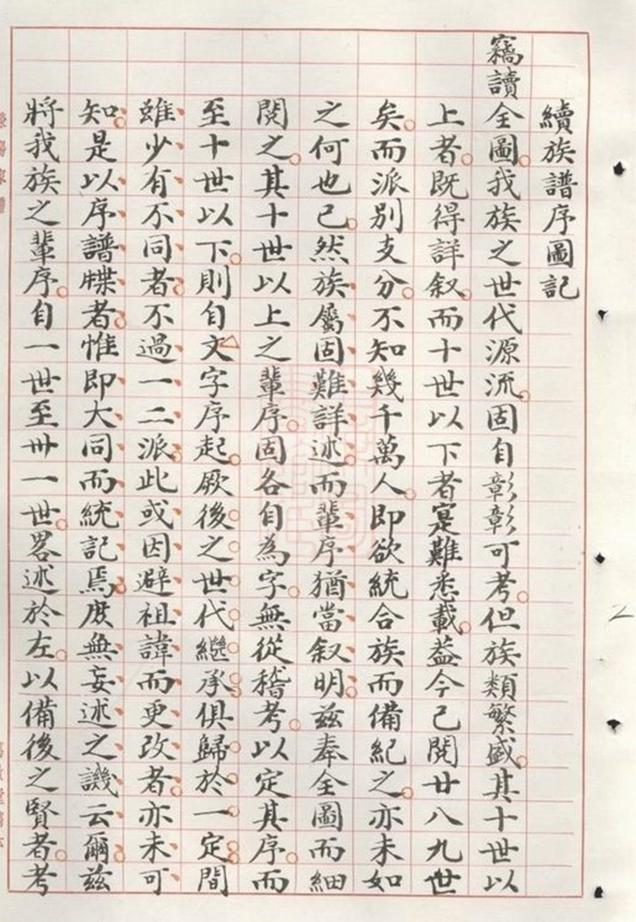 續族譜序圖記
竊讀全圖我族之世代源流固自彰彰可考但族類繁盛其十世以
上者既得詳叙而十世以下者寔難悉載葢今已閱廿八九世
矣而派別支分不知幾千萬人即欲統合族而備紀之亦未如
之何也已然族屬固難詳述而輩序猶當叙明茲奉全圖而細
閱之其十世以上之輩序固各自為字無從稽考以定其序而
至十世以下則自文字序起厥後之世代繼承俱歸於一定間
雖少有不同者不過一二派此或因避祖諱而更改者亦未可
知是以序譜牒者惟即大同而統記焉庶無妄述之譏云爾茲
將我族之輩序自一世至卅一世畧述於左以備後之賢者考